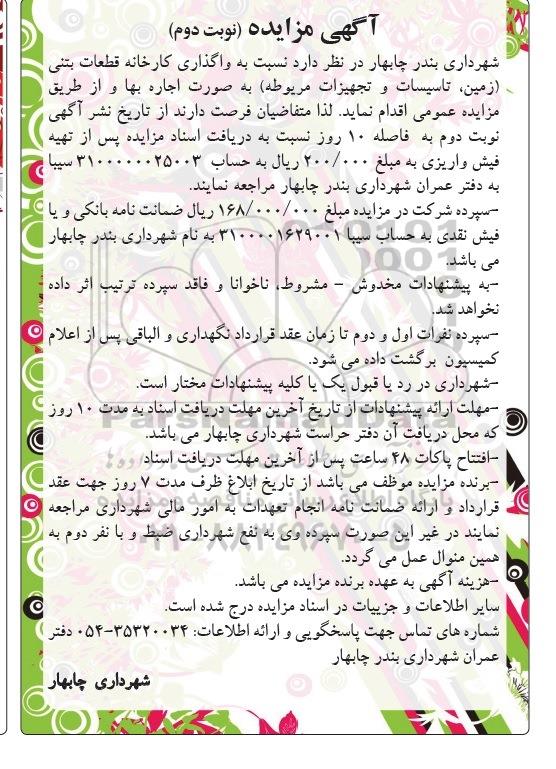 آگهی مزایده (نوبت دوم)
شهرداری بندر چابهار در نظر دارد نسبت به واگذاری کارخانه قطعات بتنی
(زمین، تاسیسات و تجهیزات مربوطه) به صورت اجاره بها و از طریق
مزایده عمومی اقدام نماید. لذا متقاضیان فرصت دارند از تاریخ نشر آگهی
نوبت دوم به فاصله ۱۰ روز نسبت به دریافت اسناد مزایده پس از تهیه
فیش واریزی به مبلغ ۲۰۰/۰۰۰ ریال به حساب ۳۱۰۰۰۰۰۰۲۵۰۰۳ سیبا
به دفتر عمران شهرداری بندر چابهار مراجعه نمایند.
-سپرده شرکت در مزایده مبلغ ۱۶۸/۰۰۰/۰۰۰ ریال ضمانت نامه بانکی و یا
فیش نقدی به حساب سیبا ۳۱۰۰۰۰۱۶۲۹۰۰۱ به نام شهرداری بندر چابهار
می باشد.
-به پیشنهادات مخدوش - مشروط، ناخوانا و فاقد سپرده ترتیب اثر داده
نخواهد شد.
-سپرده نفرات اول و دوم تا زمان عقد قرارداد نگهداری و الباقی پس از اعلام
کمیسیون برگشت داده می شود.
-شهرداری در رد یا قبول یک یا کلیه پیشنهادات مختار است.
-مهلت ارائه پیشنهادات از تاریخ آخرین مهلت دریافت اسناد به مدت ۱۰ روز
که محل دریافت آن دفتر حراست شهرداری چابهار می باشد.
-افتتاح پاکات ۴۸ ساعت پس از آخرین مهلت دریافت اسناد
-برنده مزایده موظف می باشد از تاریخ ابلاغ ظرف مدت ۷ روز جهت عقد
قرارداد و ارائه ضمانت نامه انجام تعهدات به امور مالی شهرداری مراجعه
نمایند در غیر این صورت سپرده وی به نفع شهرداری ضبط و با نفر دوم به
همین منوال عمل می گردد.
-هزینه آگهی به عهده برنده مزایده می باشد.
سایر اطلاعات و جزییات در اسناد مزایده درج شده است.
شماره های تماس جهت پاسخگویی و ارائه اطلاعات: ۳۵۳۲۰۰۳۴-۰۵۴ دفتر
عمران شهرداری بندر چابهار
شهرداری چابهار